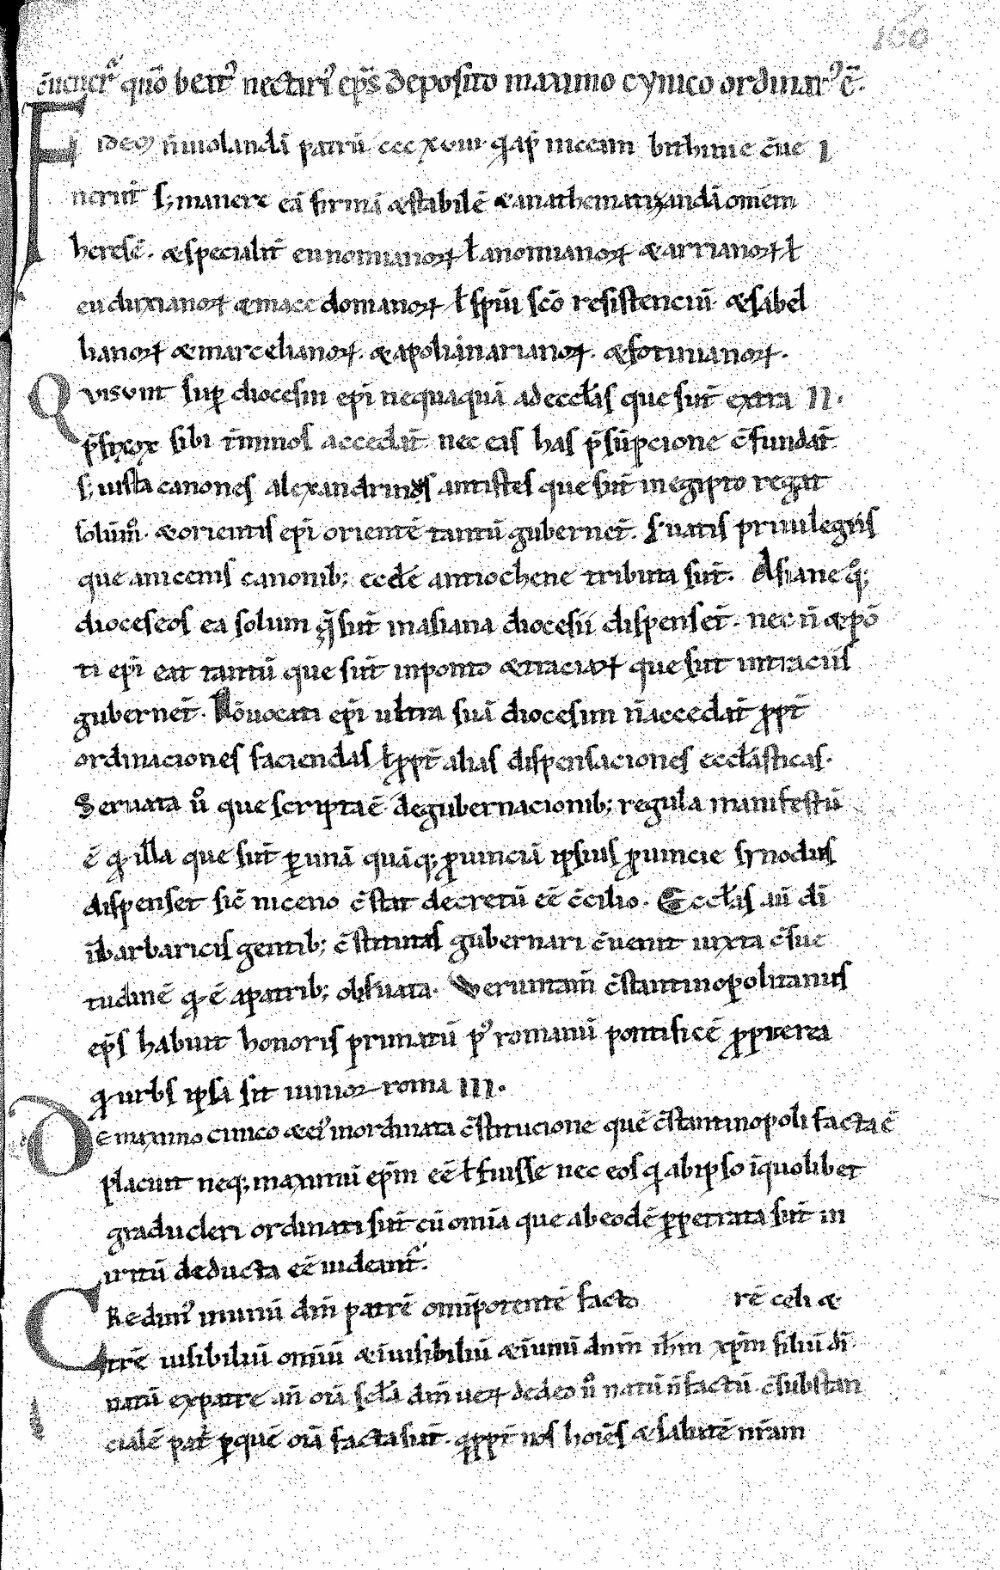 160
c̄uener̄ quō beat᷒ nectari᷒ ep̄s deposito maximo cynico ordinat᷒ ē.
Fideꝫ n̄ uiolandā patrū ccc xuiii. q̄ ap̄ niceam bithinie c̄ue I
nerūt s; manere eā firmā ⁊ stabilē ⁊ anathematizandā omēm
heresē. ⁊ specialit̄ eunomianoꝝ ł anomianoꝝ ⁊ arrianoꝝ ł
eudoxianoꝝ ⁊ macedonianoꝝ ł spiū scō resistenciū ⁊ sabel
lianoꝝ ⁊ marcelianoꝝ. ⁊ apolinarianoꝝ. ⁊ fotinianoꝝ.
Qui sunt sup̄ diocesin ep̄i nequaquā ad eccłas que sūt extra II.
p̄fixos sibi t̄minos accedāt nec eas has p̄sūpcione c̄fundāt
s; iusta canones alexandrinus antistes que sūt in egipto regat
solūm᷒. ⁊ orientis ep̄i orientē tantū gubernēt. Suatis priuilegiis
que anicenis canonib; eccłe antiochene tributa sūt. Asiane q̄;
dioceseos ea solum q̄ sūt in asiana diocesii dispensēt. nec n̄ ⁊ pō
ti ep̄i eat tantū que sūt in ponto ⁊ traciaꝝ que sūt in traciis
gubernēt. Nōuocati ep̄i ultra suā diocesim n̄ accedāt ꝓpt̄
ordinaciones faciendas ł ꝓpt̄ alias dispensaciones eccłasticas.
Seruata ū que scripta ē de gubernacionib; regula manifestū
ē ꝙ illa que sūt ꝑ unā quāq; ꝓuinciā ipsius ꝓuincie synodus
dispenset sic̄ niceno c̄stat decretū eē c̄cilio. Eccłas aū dī
ī barbaricis gentib; c̄stitutas gubernari c̄uenit iuxta c̄sue
tudinē ꝙ ē a patrib; obseruata. Uerumtam̄ c̄stantinopolitanus
ep̄s habuit honoris primatū p᷒ romanū pontificē ꝓpterea
ꝙ urbs ipsa sit iunior roma III.
De maximo cinico ⁊ ei᷒ inordinata c̄stitucione quē c̄stantinopoli facta ē
placuit neq; maximū ep̄m eē ł fuisse nec eos q̄ ab ipso ī quolibet
gradu cleri ordinati sūt cū omīa que ab eodē ꝑpetrata sūt in
irritū deducta eē uideant᷒.
Credim᷒ in unū dm̄ patrē omīpotentē facto rē celi ⁊
trē uisibiliū omīū ⁊ īuisibiliū ⁊ ī unū dnm̄ ihm̄ xp̄m filiū dī
natū ex patre an̄ oīa scła dm̄ ueꝝ de deo ū natū n̄ factū. c̄substan
cialē pat̄ ꝑ quē oīa facta sūt. q̄ ꝓpt̄ nos hoīēs ⁊ salutē nr̄am